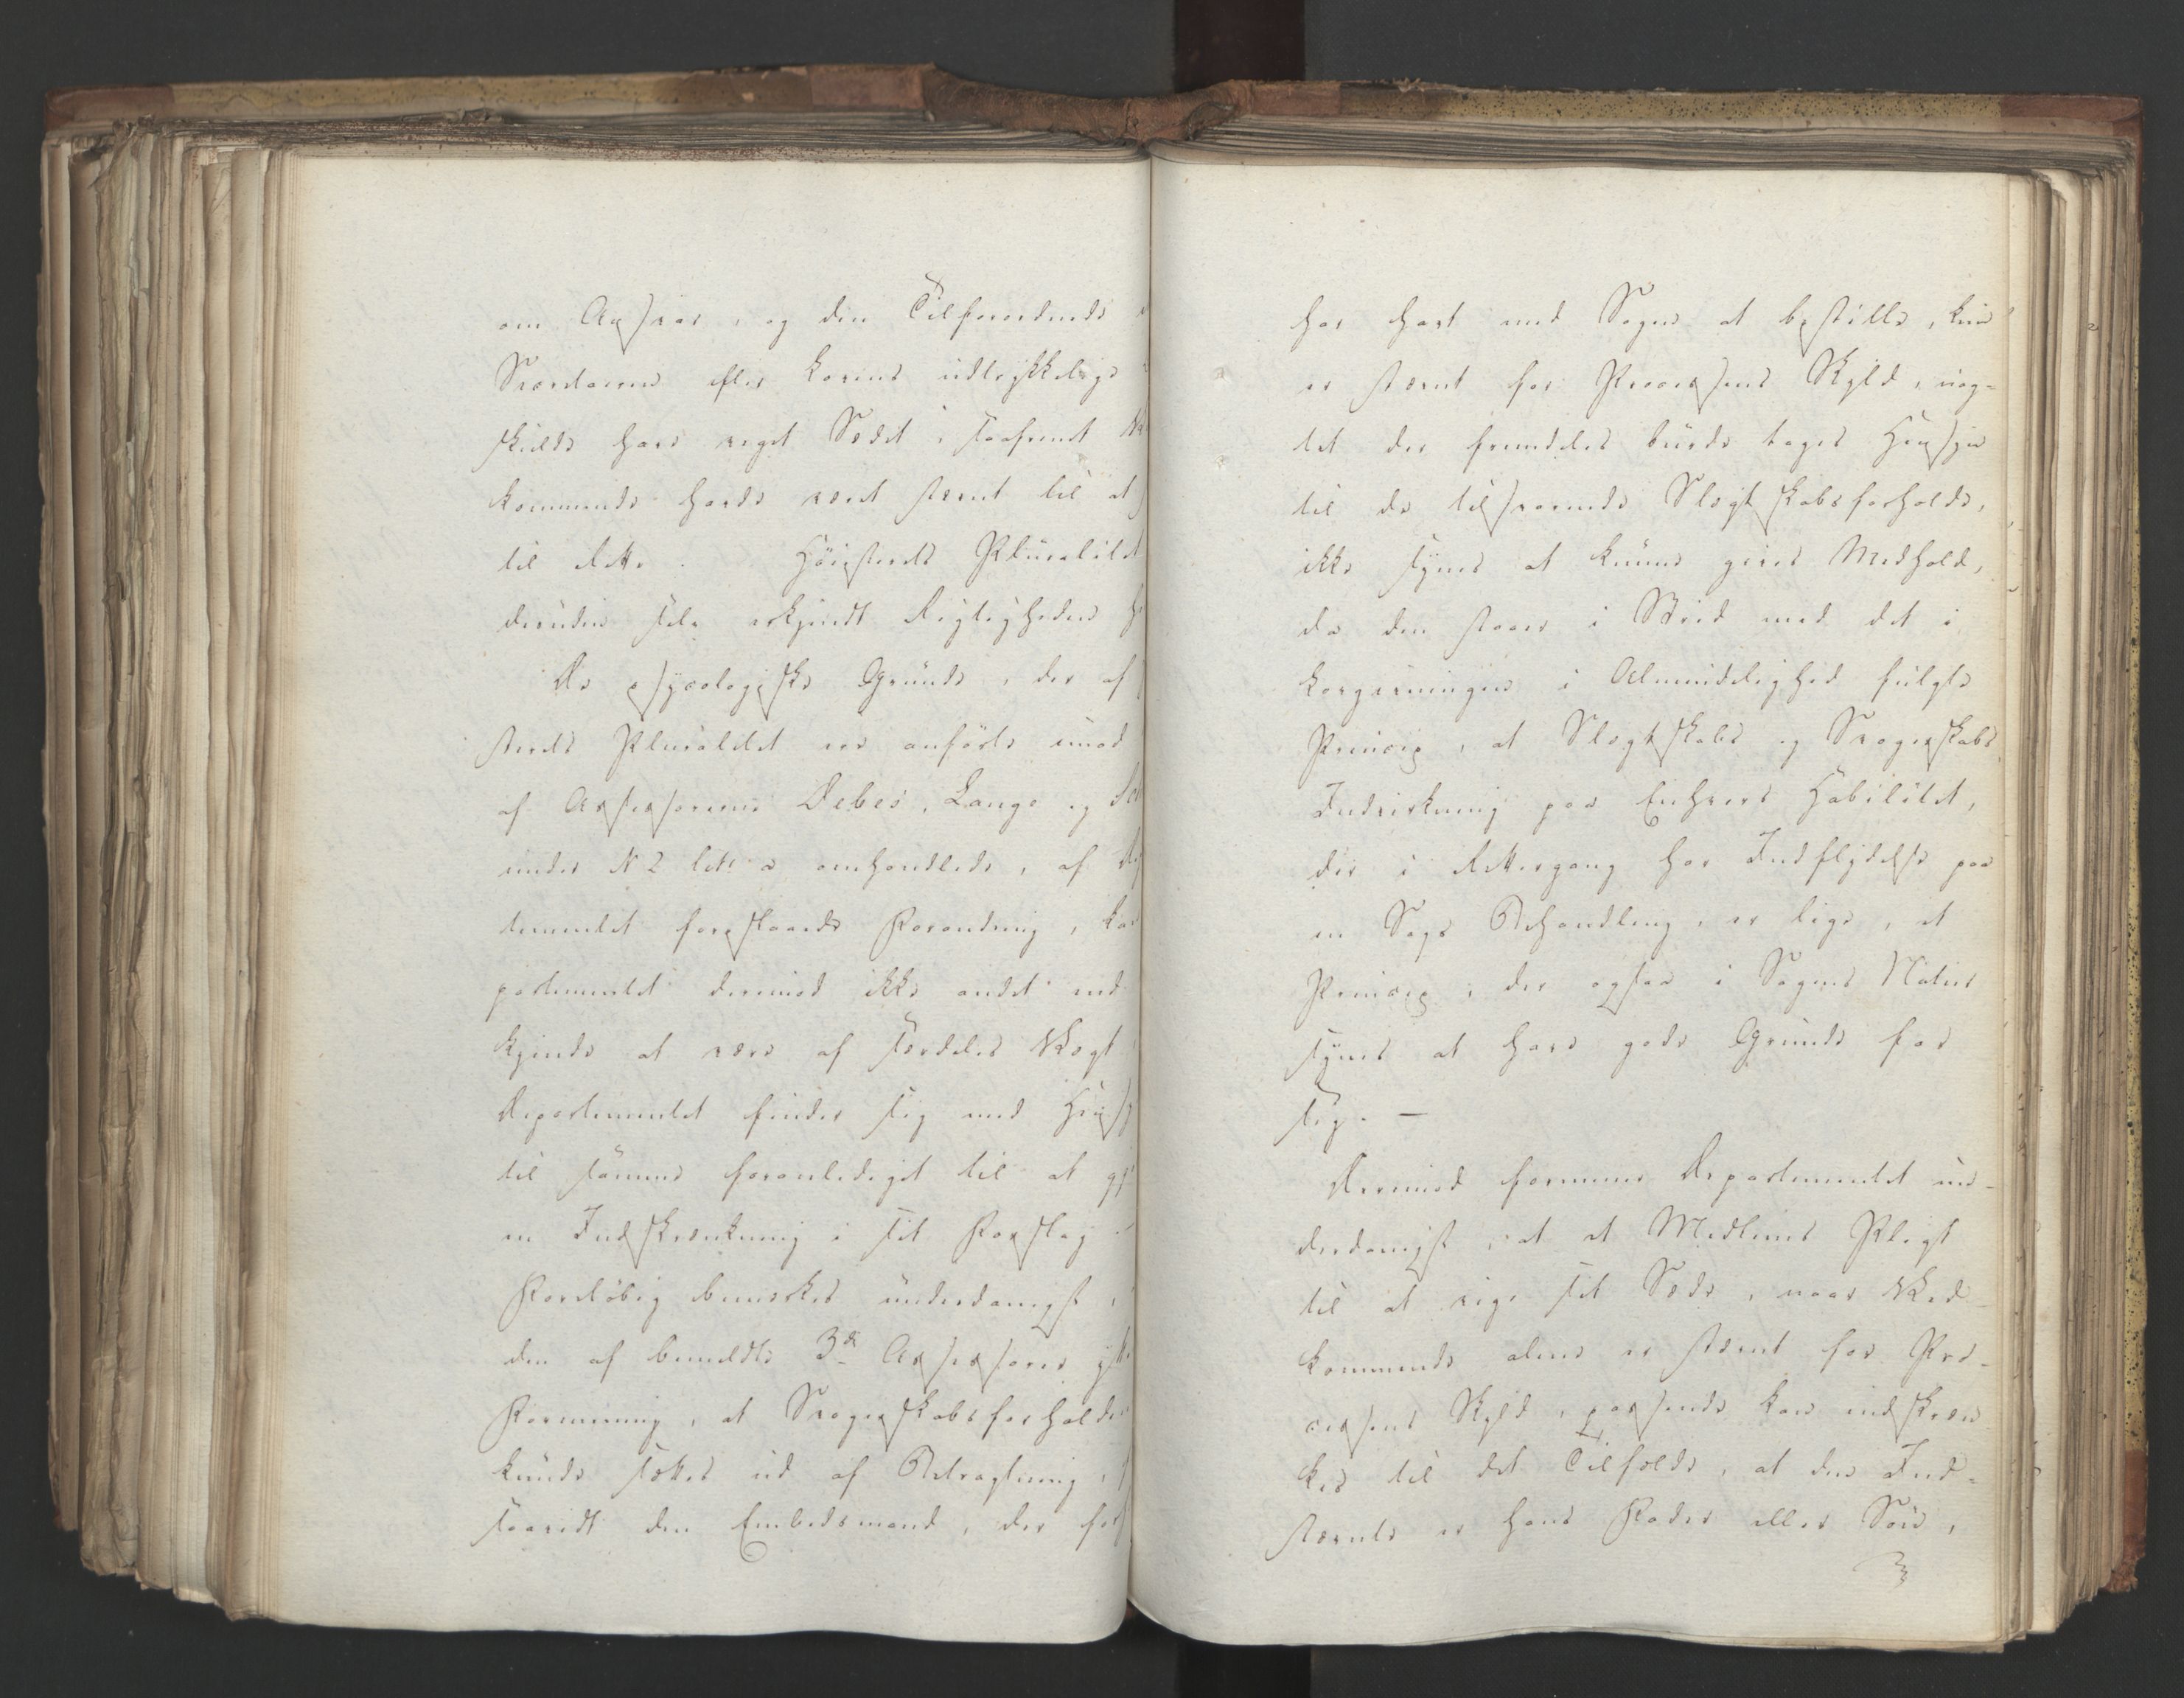 om Ansvar, og den Tilforordnede
Srorlarene efter Lovens udtrykkelige
skulde have veget Sædet, saafremt
kommende havde været stævnt til at
til Rette. Høiesterets Pluralitet
desuden selv erkjendt Rigtigheden
De psycologiske Grunde, der af
sterets Pluralitet ere anførte imod
af Assessorerne Debes, Lange og
under N 2 litr a omhandlede, af
tementet foreslaaede Forandring, kan
partementet derimod ikke andet end
kjende at være af særdeles Vægt
Departementet finder sig med Hensy
til samme foranlediget til at gj
en Indskrænkning i sit Forslag
Foreløbig bemærkes underdanigst,
den af bemeldte 3de Assessorer
Formening, at Svogerskabsforholdet
kunde sættes ud af Betragtning,
saavidt den Embedsmand, der for
har havt med Sagen at bestille, kun
er stævnt for Processens Skyld, uag-
tet der fremdeles burde tages Hensyn
til de tilsvarende Slægtskabsforholde,
ikke synes at kunne gives Medhold,
da den staaer i Strid med det i
Lovgivningen i Almindelighed fulgte
Princip, at Slægtskabs og Svogerskabs
Indvirkning paa Enhvers Habilitet,
der i Rettergang har Indflydelse paa
en Sags Behandling, er lige, et
Princip, der ogsaa i Sagens Natur
synes at have gode Grunde for
sig. —
Derimod formener Departementet un-
derdanigst, at et Medlems Pligt
til at vige sit Sæde, naar Ved-
kommende alene er stævnt for Pro-
cessens Skyld, passende kan indskræn
kes til det Tilfælde, at den Ind-
stævnte er hans Fader eller Søn,